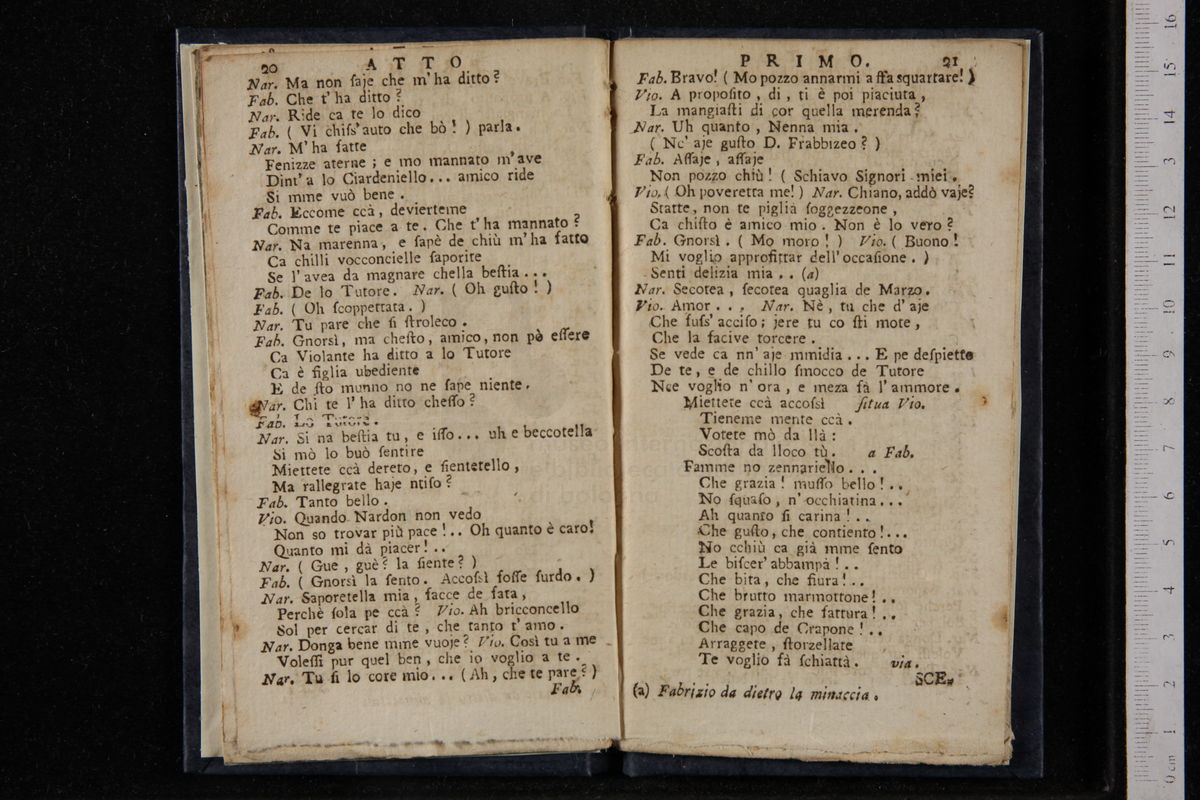 20 ATTO
Nar. Ma non ſaje che m'ha ditto?
Fab. Che t'ha ditto?
Nar. Ride ca te lo dico
Fab. ( Vi chiſs'auto che bò! ) parla.
Nar. M'ha fatte
Fenizze aterne; e mo mannato m'ave
Dint'a lo Ciardeniello... amico ride
Si mme vuò bene.
Fab. Eccome ccà, devierteme
Comme te piace a te. Che t'ha mannato?
Nar. Na marenna, e ſapè de chiù m'ha fatto
Ca chilli vocconcielle ſaporite
Se l'avea da magnare chella beſtia...
Fab. De lo Tutore. Nar. ( Oh guſto! )
Fab. ( Oh ſcoppettata. )
Nar. Tu pare che ſi ſtroleco.
Fab. Gnorsì, ma cheſto, amico, non pò eſſere
Ca Violante ha ditto a lo Tutore
Ca è figlia ubediente
E de ſto munno no ne ſape niente.
Nar. Chi te l'ha ditto cheſſo?
Fab. Lo Tutore.
Nar. Si na beſtia tu, e iſſo... uh e beccotella
Si mò lo buò ſentire
Miettete ccà dereto, e ſientetello,
Ma rallegrate haje ntiſo?
Fab. Tanto bello.
Vio. Quando Nardon non vedo
Non so trovar più pace!.. Oh quanto è caro!
Quanto mi dà piacer!..
Nar. ( Gue, guè? la ſiente? )
Fab. ( Gnorsì la ſento. Accoſsì foſſe ſurdo. )
Nar. Saporetella mia, facce de fata,
Perchè ſola pe ccà? Vio. Ah bricconcello
Sol per cercar di te, che tanto t'amo.
Nar. Donga bene mme vuoje? Vio. Così tu a me
Voleſſi pur quel ben, che io voglio a te.
Nar. Tu ſi lo core mio... (Ah, che te pare?)
Fab.
PRIMO. 21
Fab. Bravo! ( Mo pozzo annarmi a ffa squartare! )
Vio. A propoſito, di, ti è poi piaciuta,
La mangiaſti di cor quella merenda?
Nar. Uh quanto, Nenna mia.
( Ne' aje guſto D. Frabbizeo? )
Fab. Aſſaje, aſſaje
Non pozzo chiù! ( Schiavo Signori miei.
Vio. ( Oh poveretta me!) Nar. Chiano, addò vaje?
Statte, non te piglià ſoggezzeone,
Ca chiſto è amico mio. Non è lo vero?
Fab. Gnorsì. ( Mo moro! ) Vio. ( Buono!
Mi voglio approfittar dell'occaſione. )
Senti delizia mia.. (a)
Nar. Secotea, ſecotea quaglia de Marzo.
Vio. Amor... Nar. Nè, tu che d'aje
Che fuſs'acciſo; jere tu co ſti mote,
Che la facive torcere.
Se vede ca nn'aje mmidia... E pe deſpietto
De te, e de chillo ſmocco de Tutore
Nce voglio n'ora, e meza fà l'ammore.
Miettete ccà accoſsì ſitua Vio.
Tieneme mente ccà.
Votete mò da llà:
Scoſta da lloco tù. a Fab.
Famme no zennariello...
Che grazia! muſſo bello!..
No ſquaſo, n'occhiatina...
Ah quanto ſi carina!..
Che guſto, che contiento!...
No cchiù ca già mme ſento
Le biſcer'abbampà!..
Che bita, che fiura!..
Che brutto marmottone!..
Che grazia, che fattura!..
Che capo de Crapone!..
Arraggete, ſtorzellate
Te voglio fà ſchiattà. via.
SCE-
(a) Fabrizio da dietro la minaccia.